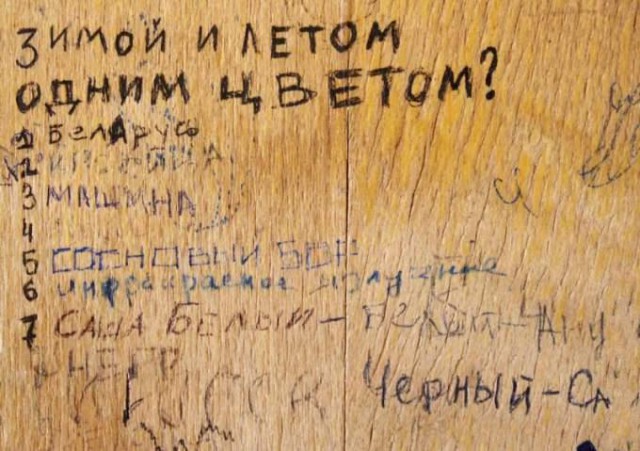 ЗИМОЙ И ЛЕТОМ
ОДНИМ ЦВЕТОМ?
1 БЕЛАРУСЬ
2
3 МАШИНА
4
5 СОСНОВЫЙ БОР
6 инфракрасное излучение
7 САША БЕЛЫЙ -
НЕГР
ЧЕРНЫЙ-СА